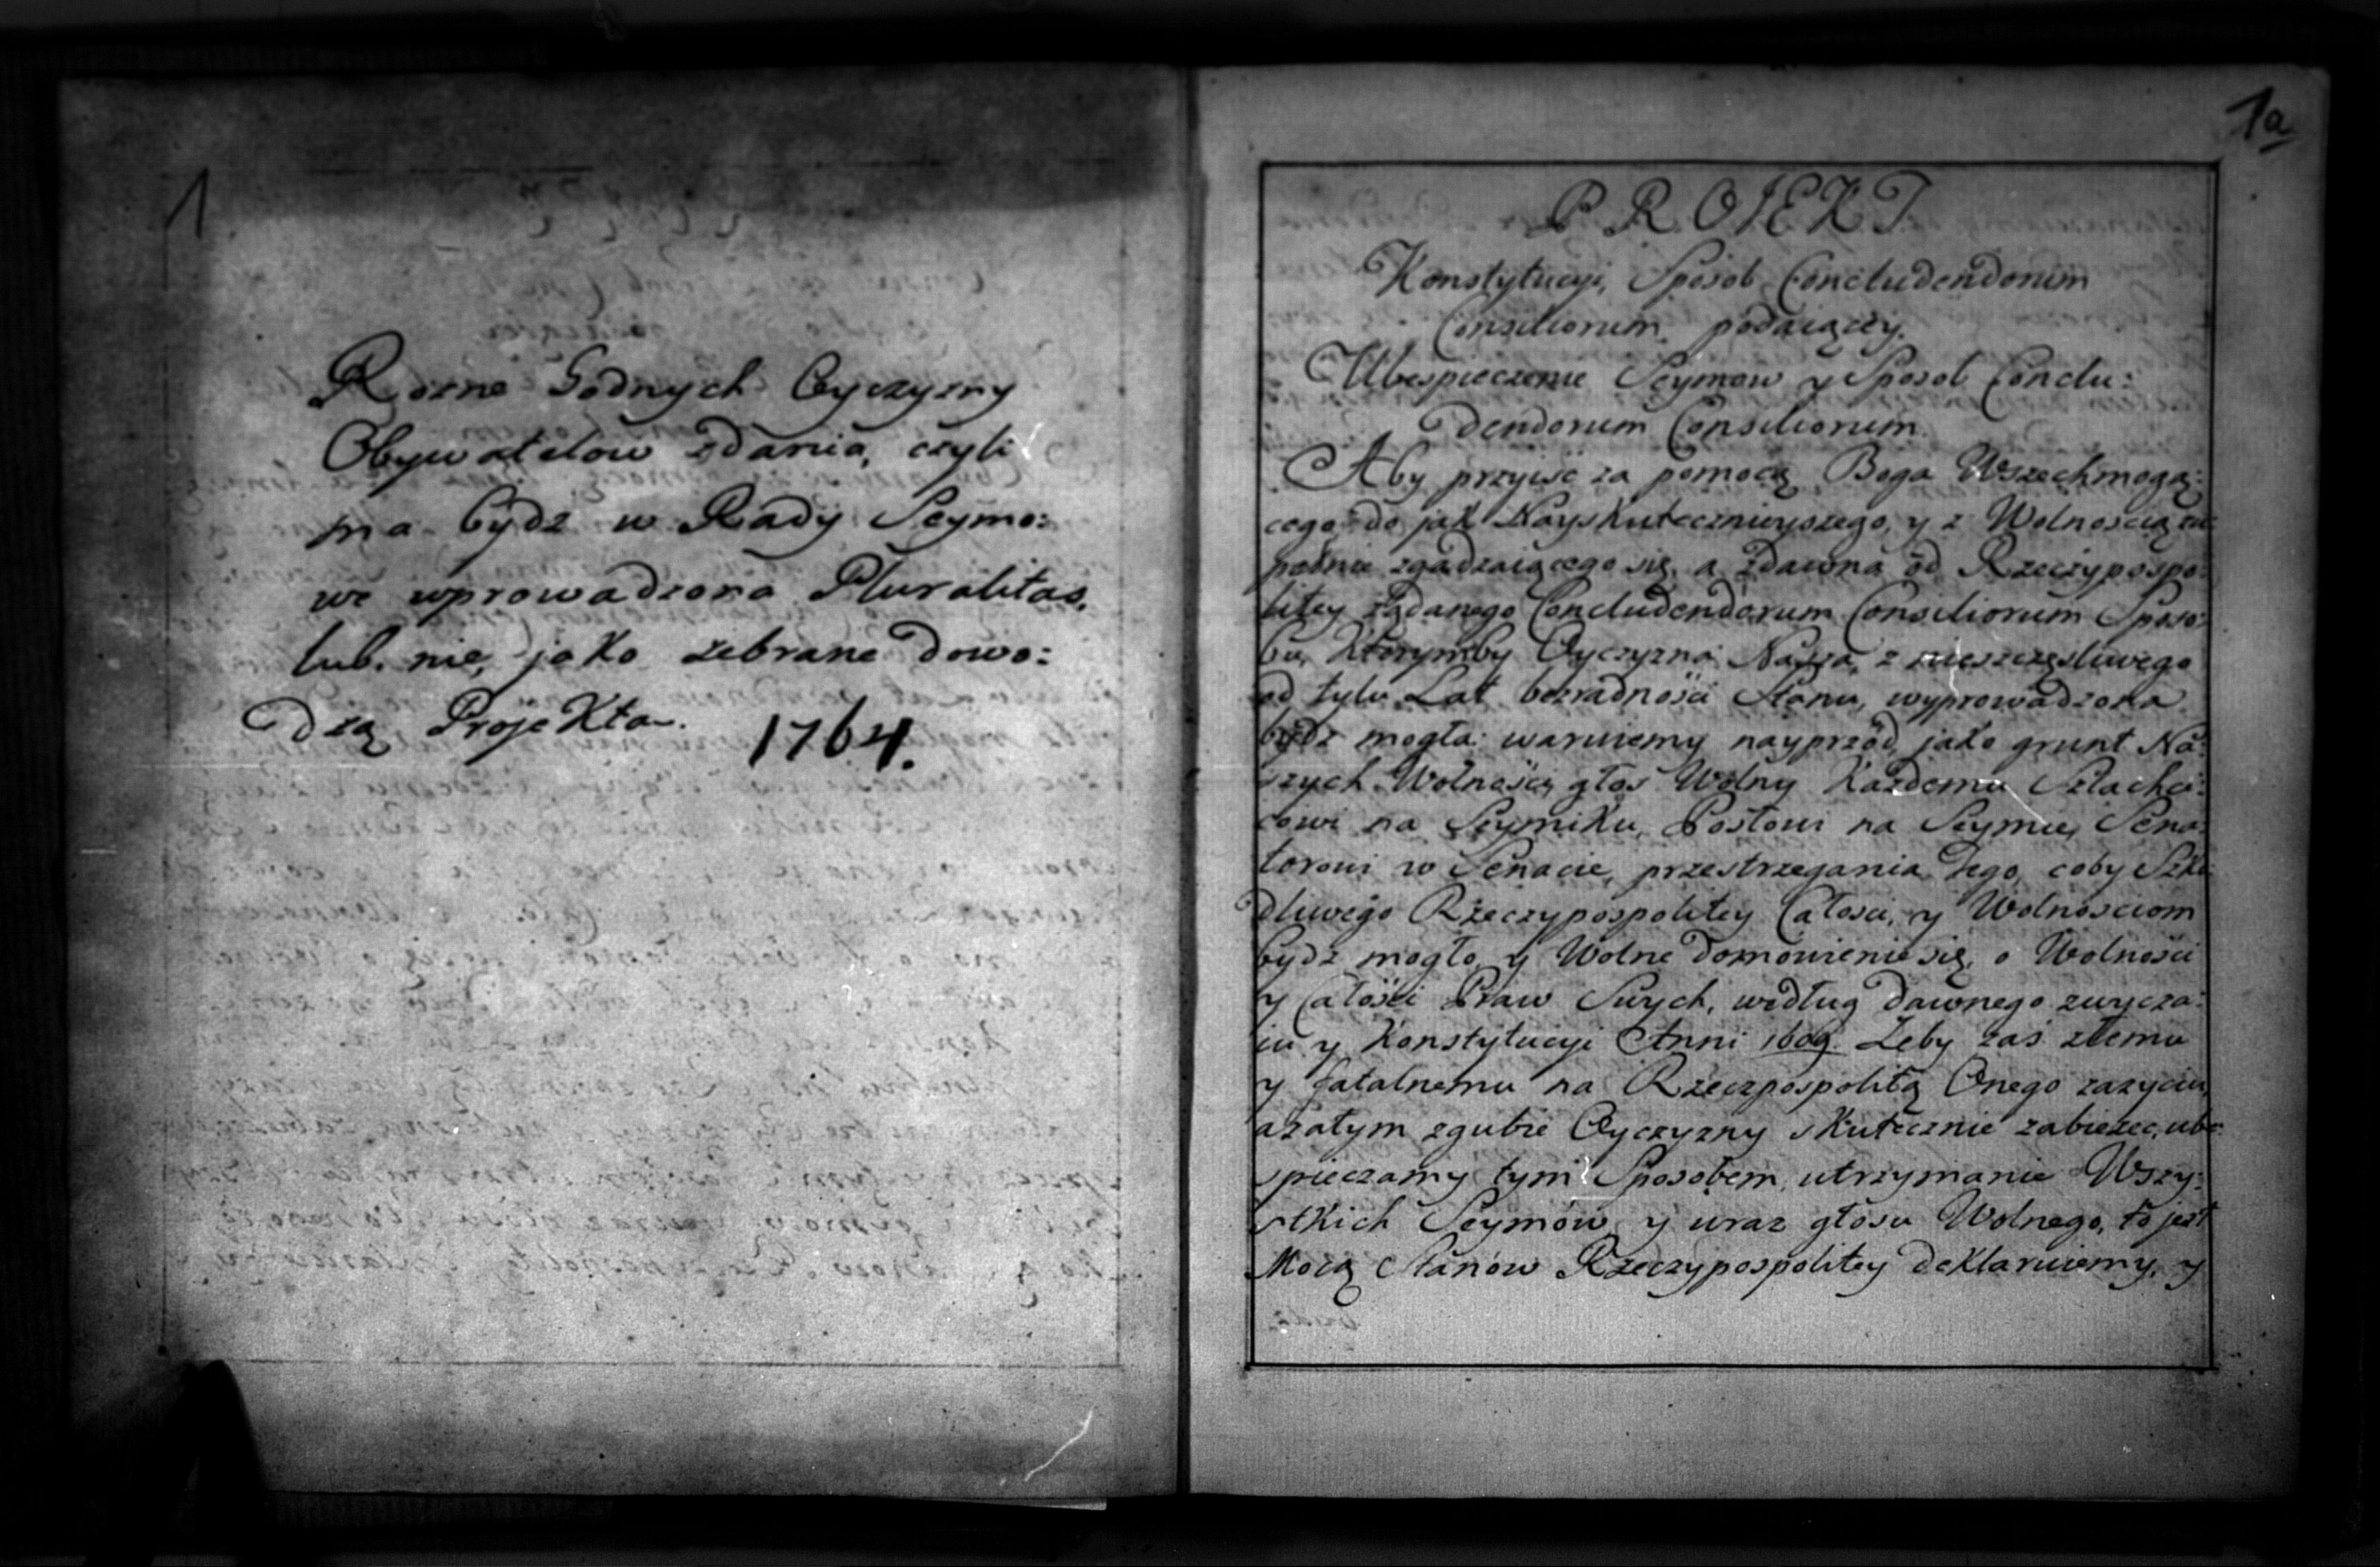 1
Rozne Godnych Oyczyzny
Obywatelow zdania, czyli
ma bydź w Rady Seymo:
we wprowadzona Pluralitas,
lub. nie, jako zebrane dowo:
dzą Projekta. 1764.
1a
PROIEKT
Konstytucyi, Sposob Concludendorum
Consiliorum podaiący.
Ubespieczenie Seymow y Sposob Conclu:
dendorum Consiliorum.
Aby przyiść za pomocą Boga Wszechmogą:
cego do jak Nayskutecznieyszego, y z Wolnoscią zu:
pełnie zgadzaiącego się, a zdawna od Rzeczypospo:
litey żądanego Concludendorum Consiliorum Sposo:
bu, Ktorymby Oyczyzna Nasza, z nieszczęsliwego
od tylu Lat bezradności Stanu, wyprowadzona
bydź mogła: waruiemy nayprzod, jako grunt Na:
szych Wolności, głos Wolny Każdemu Szlachci:
cowi na Seymiku, Posłowi na Seymie, Sena:
torowi w Senacie, przestrzegania tego, coby Szko
dliwego Rzeczypospolitey Całosci, y Wolnosciom
bydź mogło, y Wolne domowienie się, o Wolności
y Całości Praw Swych, według dawnego zwycza:
iu y Konstytucyi Anni 1609. Żeby zaś złemu
y fatalnemu na Rzeczpospolitą Onego zazyciu,
azatym zgubie Oyczyzny skutecznie zabiezec, ube:
spieczamy tym Sposobem utrzymanie Wszy:
stkich Seymów, y wraz głosu Wolnego, to jest
Mocą Stanów Rzeczypospolitey deklaruiemy, y